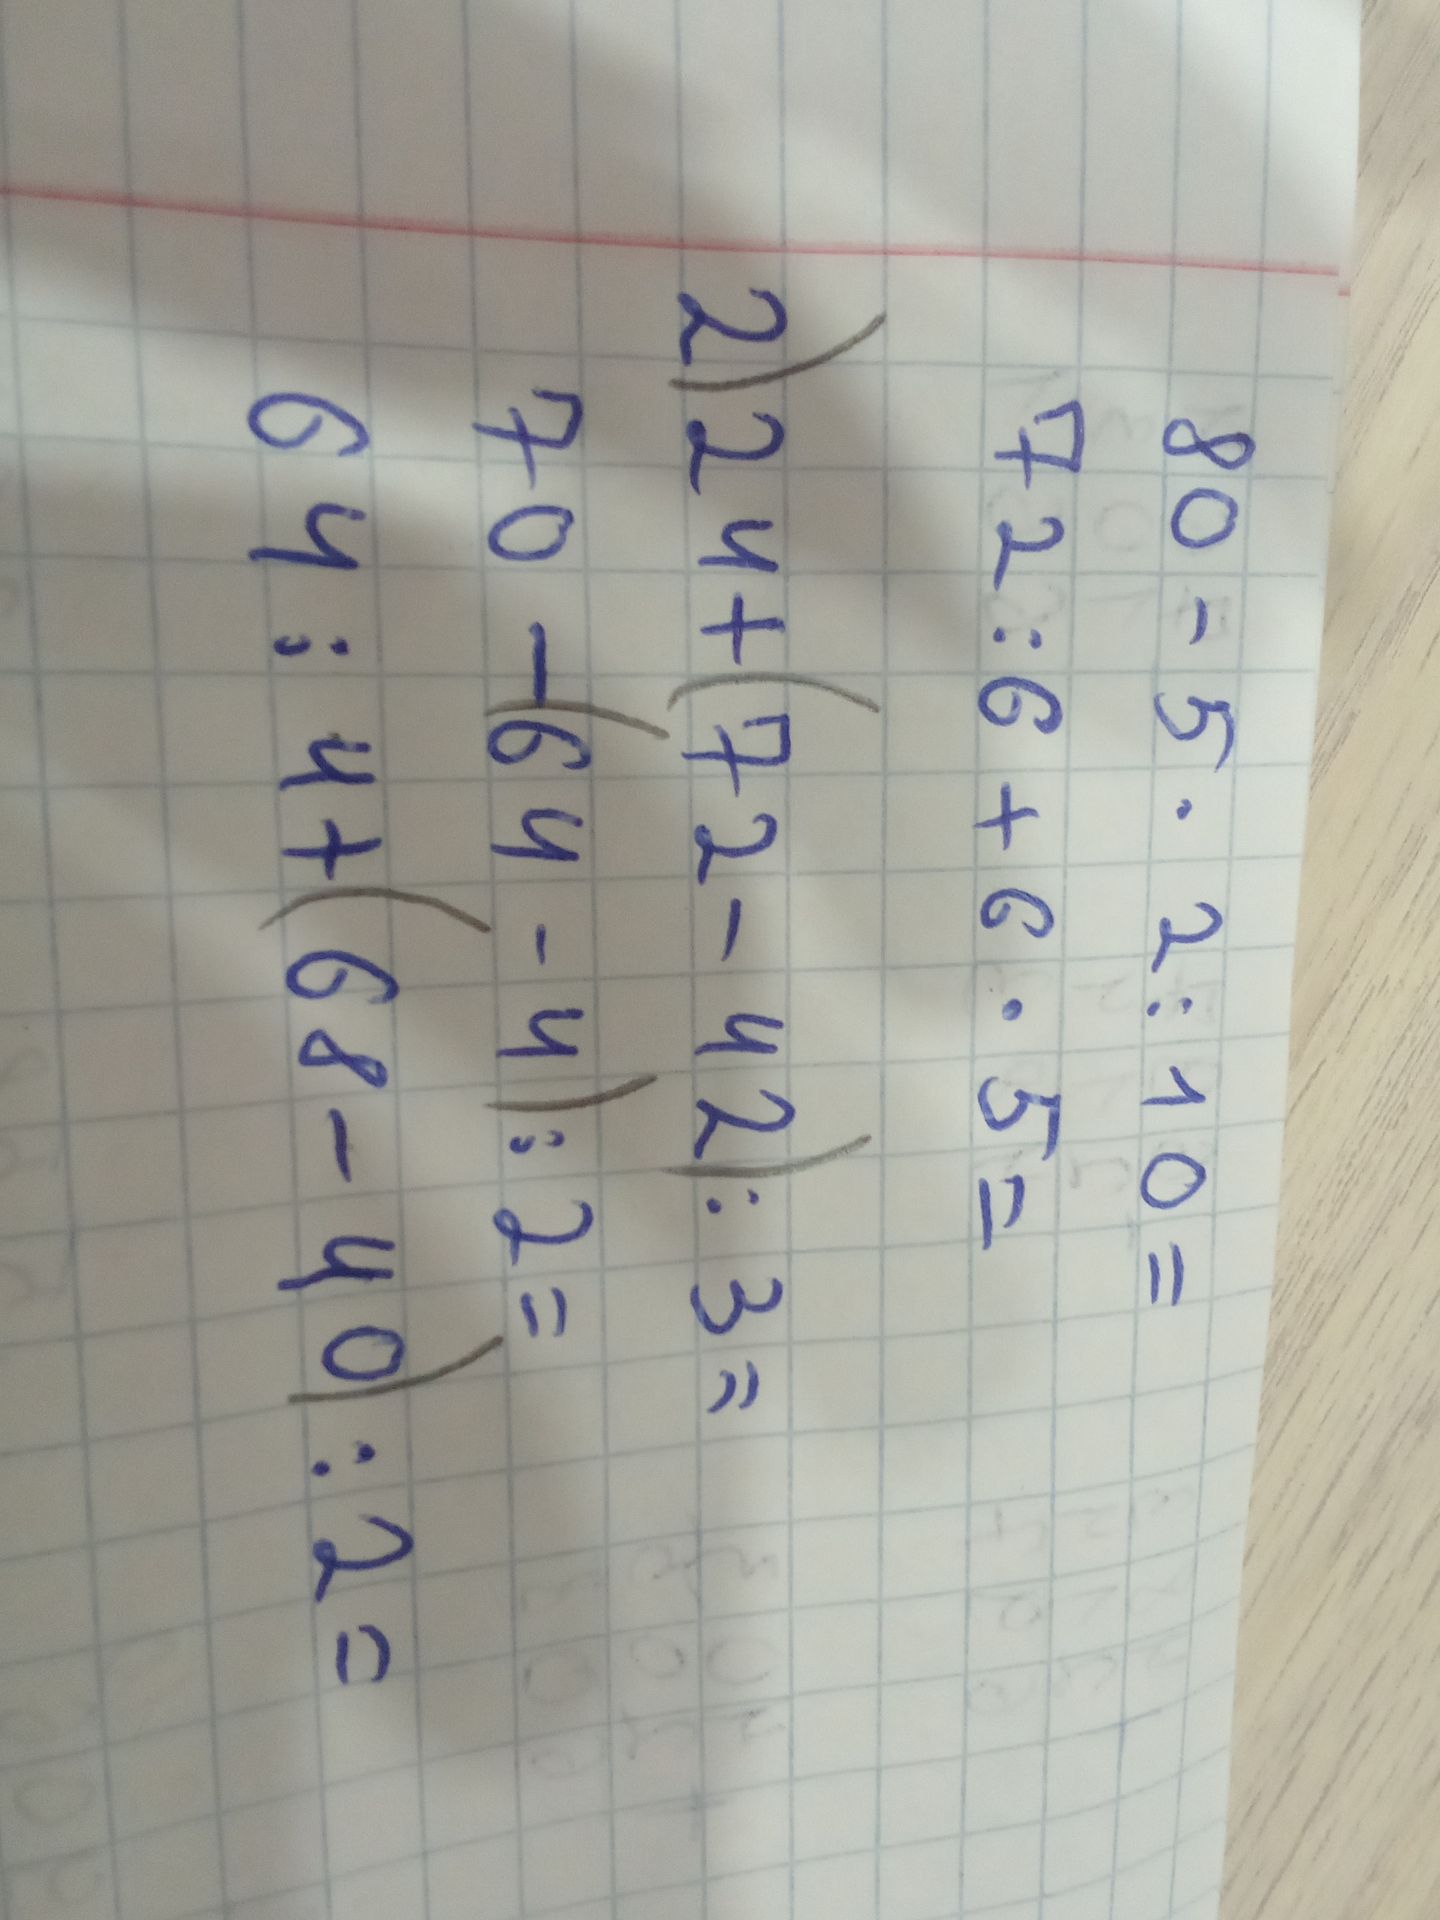 80-5·2:10=
72:6+6·5=
2)24+(72-42):3=
70-(64-4):2=
64:4+(68-40):2=